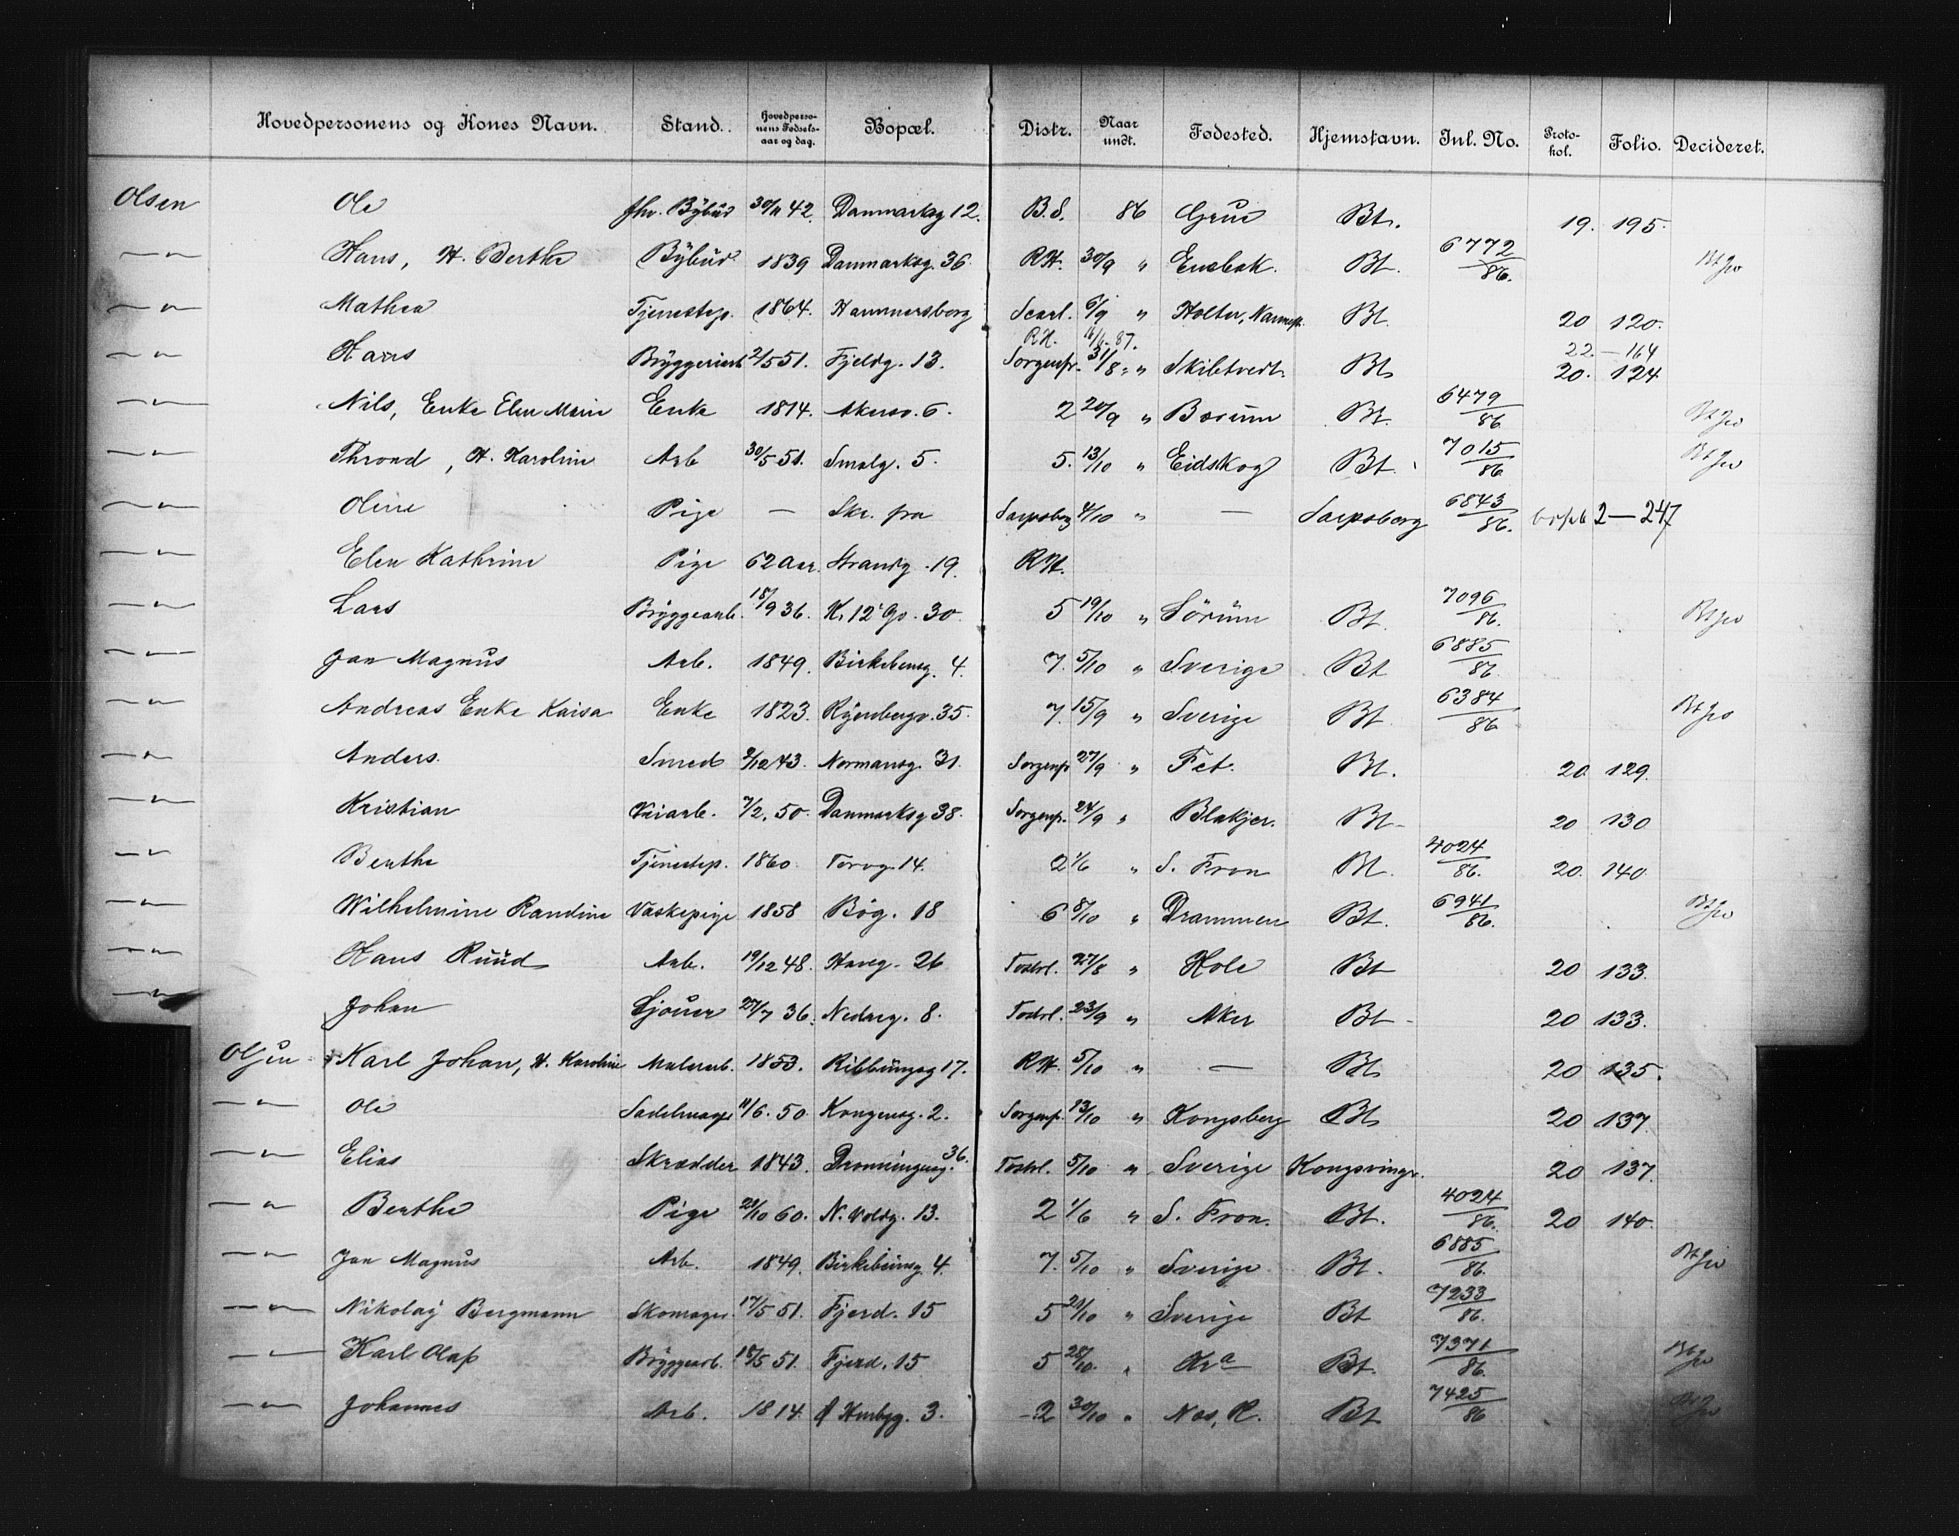 Hovedpersonens og Kones Navn. Stand. Hovedpersonens Fødselsaar og dag. Bopæl. Distr. Naar undt. Fødested. Hjemstavn. Inl. No. Protokol. Folio. Decideret.
Olsen Ole fhv. Bybud 30/11 42. Danmarksg 12. B.S. 86 Grue Bt. 19. 195.
—„— Hans, H. Berthe Bybud 1839 Danmarksg. 36. RH. 30/9 „ Enebak. Bt. 6772/86. Bt
—„— Mathea Tjenestep. 1864. Hammersborg Scarl. 6/9 „ Holter, Nannest. Bt. 20 120.
RH. 16/6 87. 22.—164
—„— Hans Bryggeriarb 2/5 51. Fjeldg. 13. Sorgenfr. 31/8 „ Skibtvedt. Bt 20. 124
—„— Nils, Enke Elen Marie Enke 1814. Akersv. 6. 2 20/9 „ Bærum Bt. 6479/86 Bt
—„— Thrond, H. Karoline Arb 30/5 51. Smalg. 5. 5. 13/10 „ Eidskog Bt. 7015/86 Bt
—„— Oline Pige — Skr. fra Sarpsborg 4/10 „ — Sarpsborg 6843/86. 2—247
—„— Elen Kathrine Pige 62 Aar. Strandg. 19. RH.
—„— Lars Bryggearb. 18/9 36. K. 12' Gd. 30 5 19/10 „ Sørum Bt. 7096/86. Bt
—„— Jan Magnus Arb. 1849. Birkebeng. 4. 7. 5/10 „ Sverige Bt 6885/86.
—„— Andreas Enke Kaisa Enke 1823. Ryenbergv. 35. 7. 15/9 „ Sverige Bt 6384/86 Bt
—„— Anders. Smed 9/12 43. Normansg. 31. Sorgenfr 27/9 „ Fet. Bt. 20 129.
—„— Kristian Veiarb. 7/2. 50. Danmarksg 38. Sorgenfr. 24/9 „ Blakjer. Bt 20 130
—„— Berthe Tjenestep. 1860. Torvg. 14. 2 1/6 „ S. Fron Bt. 4024/86. 20. 140
—„— Wilhelmine Randine Vaskepige 1858 Bøg. 18 6 8/10 „ Drammen Bt. 6941/86. Bt
—„— Hans Ruud Arb. 19/12 48. Haveg. 26 Tostrl. 27/8 „ Hole Bt 20 133.
—„— Johan Sjouer 27/7 36. Nedreg. 8. Tostrl. 23/9 „ Aker Bt 20 133.
Olsen Karl Johan, H. Karoline Malerarb. 1853. Ribbungsg 17. RH. 5/10 „ — Bt 20 135.
—„— Ole Sadelmager 11/6. 50. Kongensg. 2. Sorgenfr. 13/10 „ Kongsberg Bt 20 137
—„— Elias Skrædder 1843. Dronningensg. 36. Tostrl. 5/10 „ Sverige Kongsvinger. 20 137.
—„— Berthe Pige 21/10 60. N. Voldg. 13. 2 1/6 „ S. Fron. Bt. 4024/86. 20 140.
—„— Jan Magnus Arb. 1849. Birkebeinsg. 4. 7. 5/10 „ Sverige Bt. 6885/86. Bt
—„— Nikolay Bergmann Skomager. 17/5 51. Fjerd. 15 5 21/10 „ Sverige Bt 7233/86.
—„— Karl Olaf Bryggearb. 18/5 51. Fjerd. 15 5 28/10. „ Kra Bt. 7371/86. Bt
—„— Johannes Arb. 1814. 3. 2 30/10 „ Nes, R. Bt 7425/86